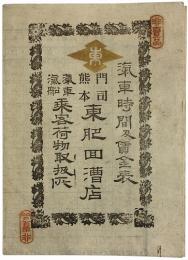 非売品
東
汽車時間及賃金表
門司
熊本
東肥回漕店
汽車
汽船
乗客荷物取扱所
非売品